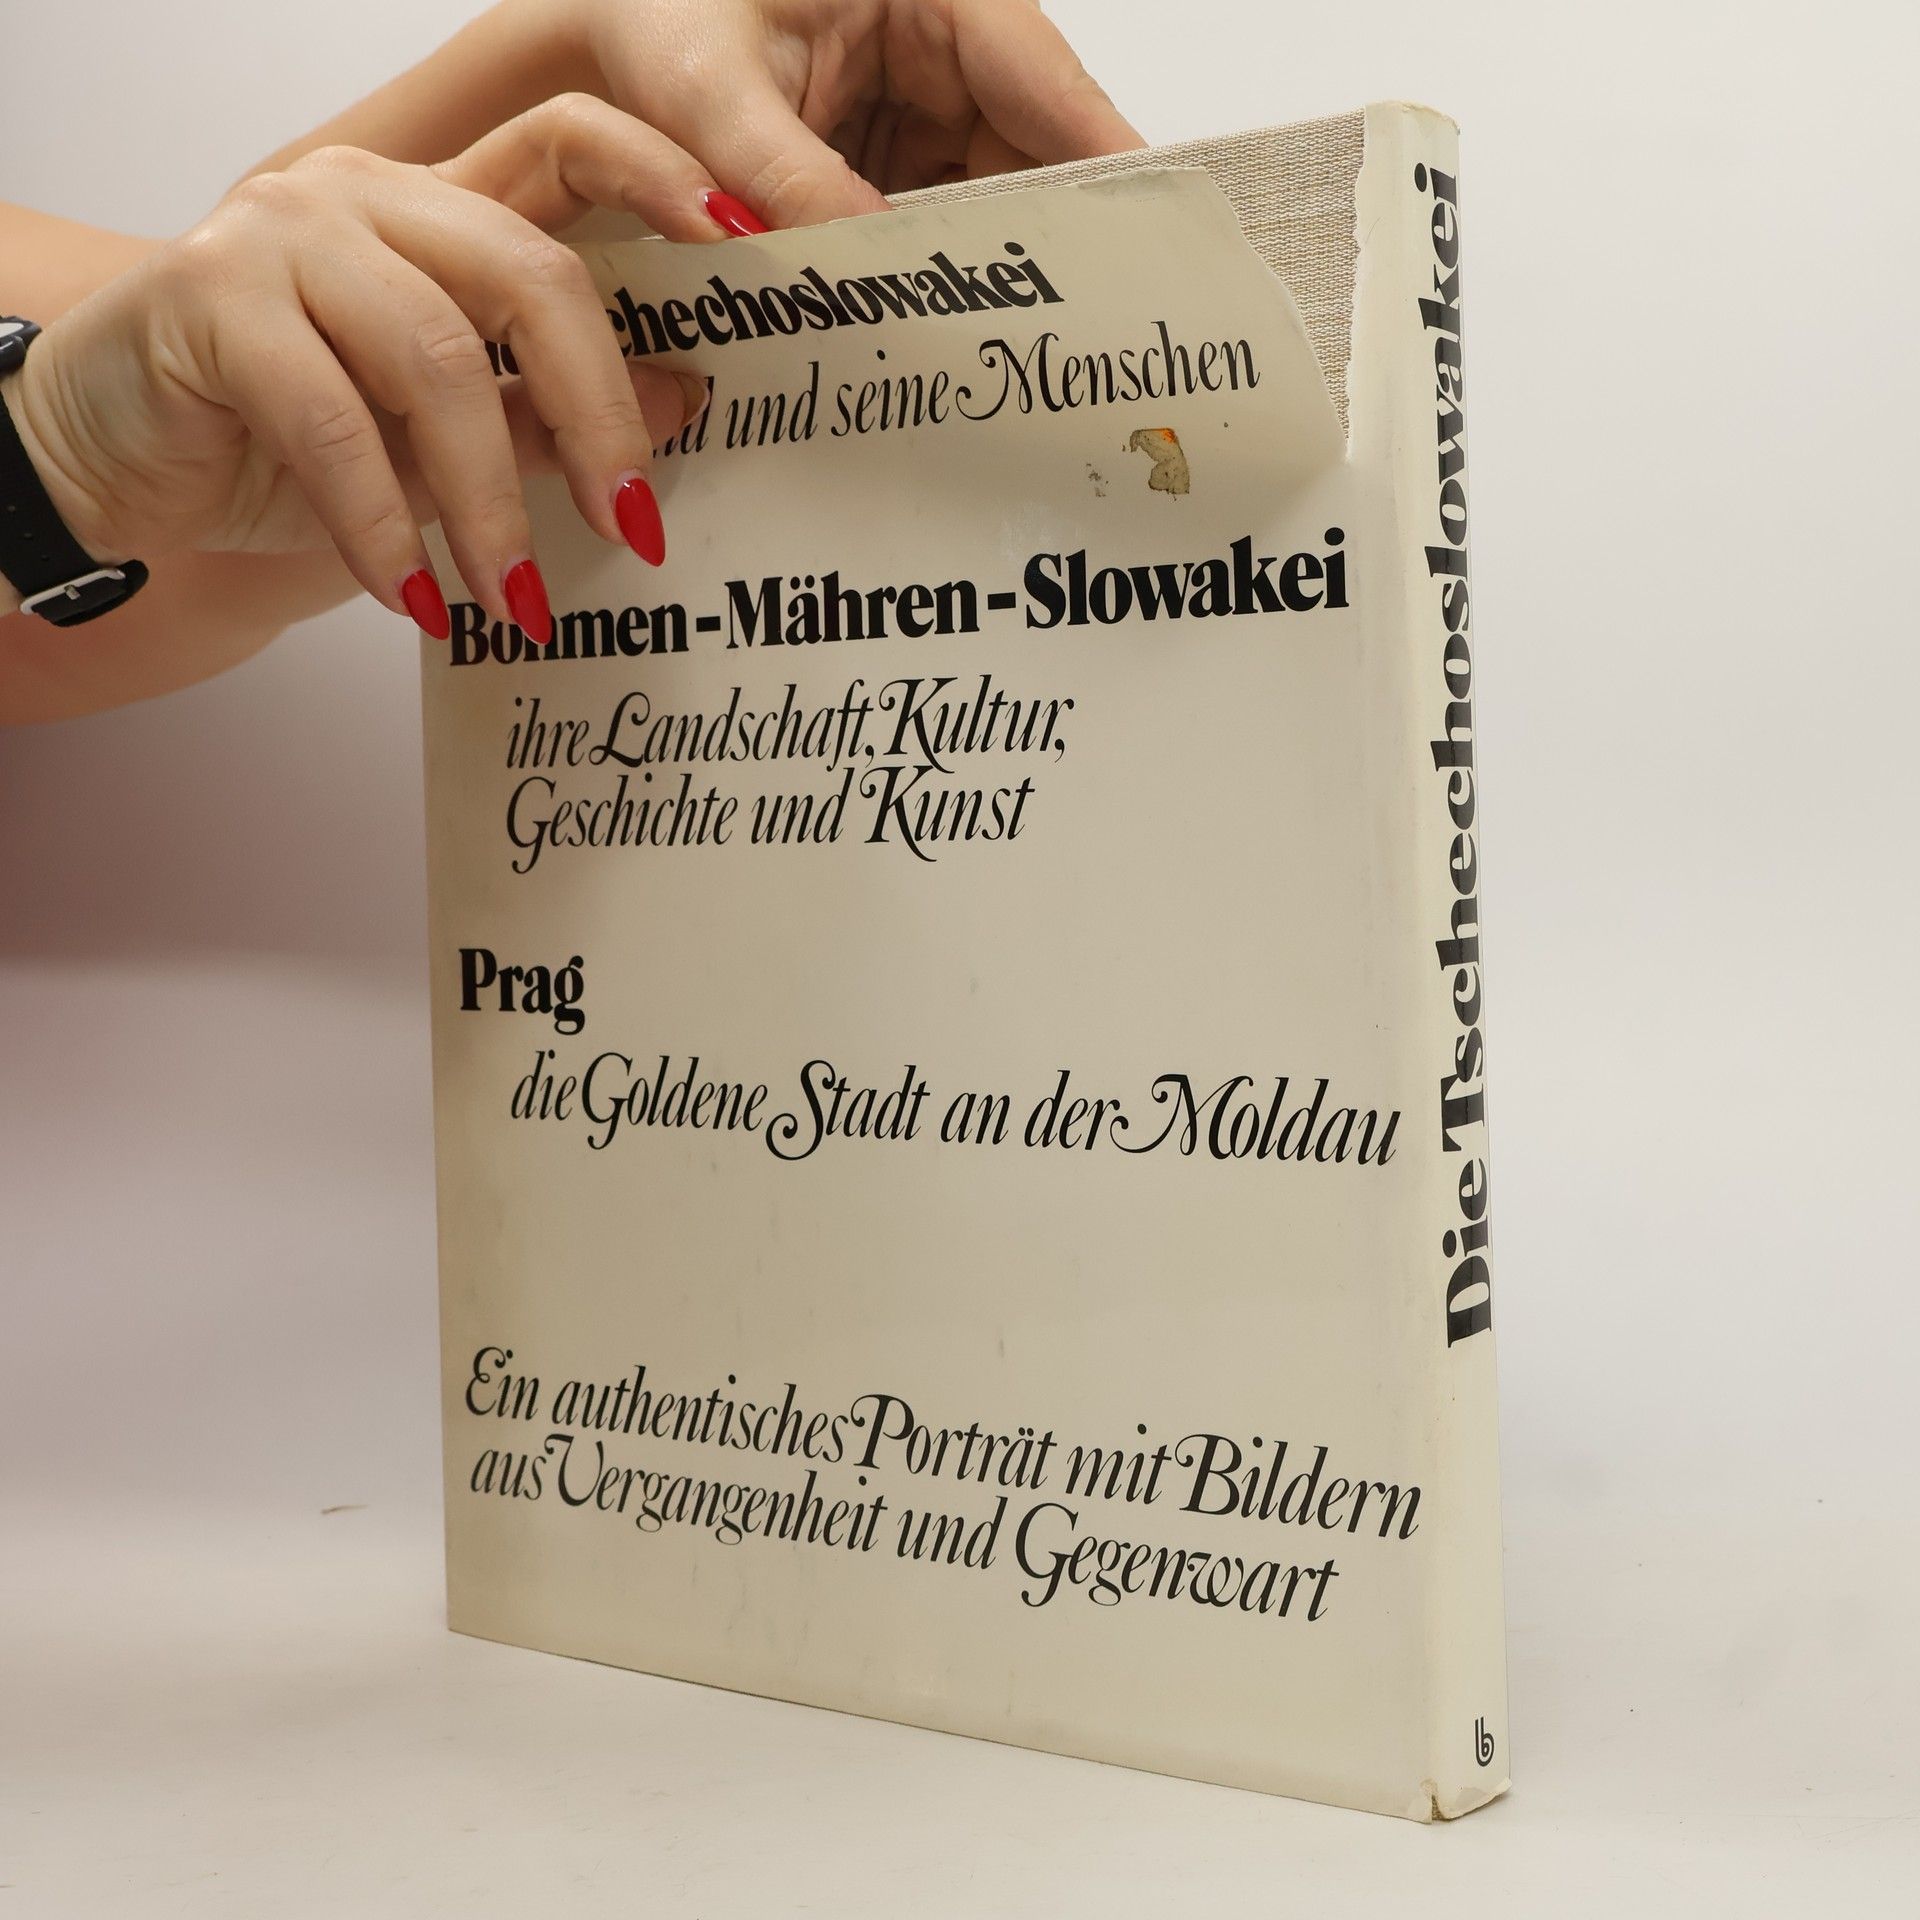 Tschechoslowakei
und seine Menschen
Böhmen-Mähren-Slowakei
ihre Landschaft, Kultur,
Geschichte und Kunst
Prag
die Goldene Stadt an der Moldau
Ein authentisches Porträt mit Bildern
aus Vergangenheit und Gegenwart
Die Tschechoslowakei
b